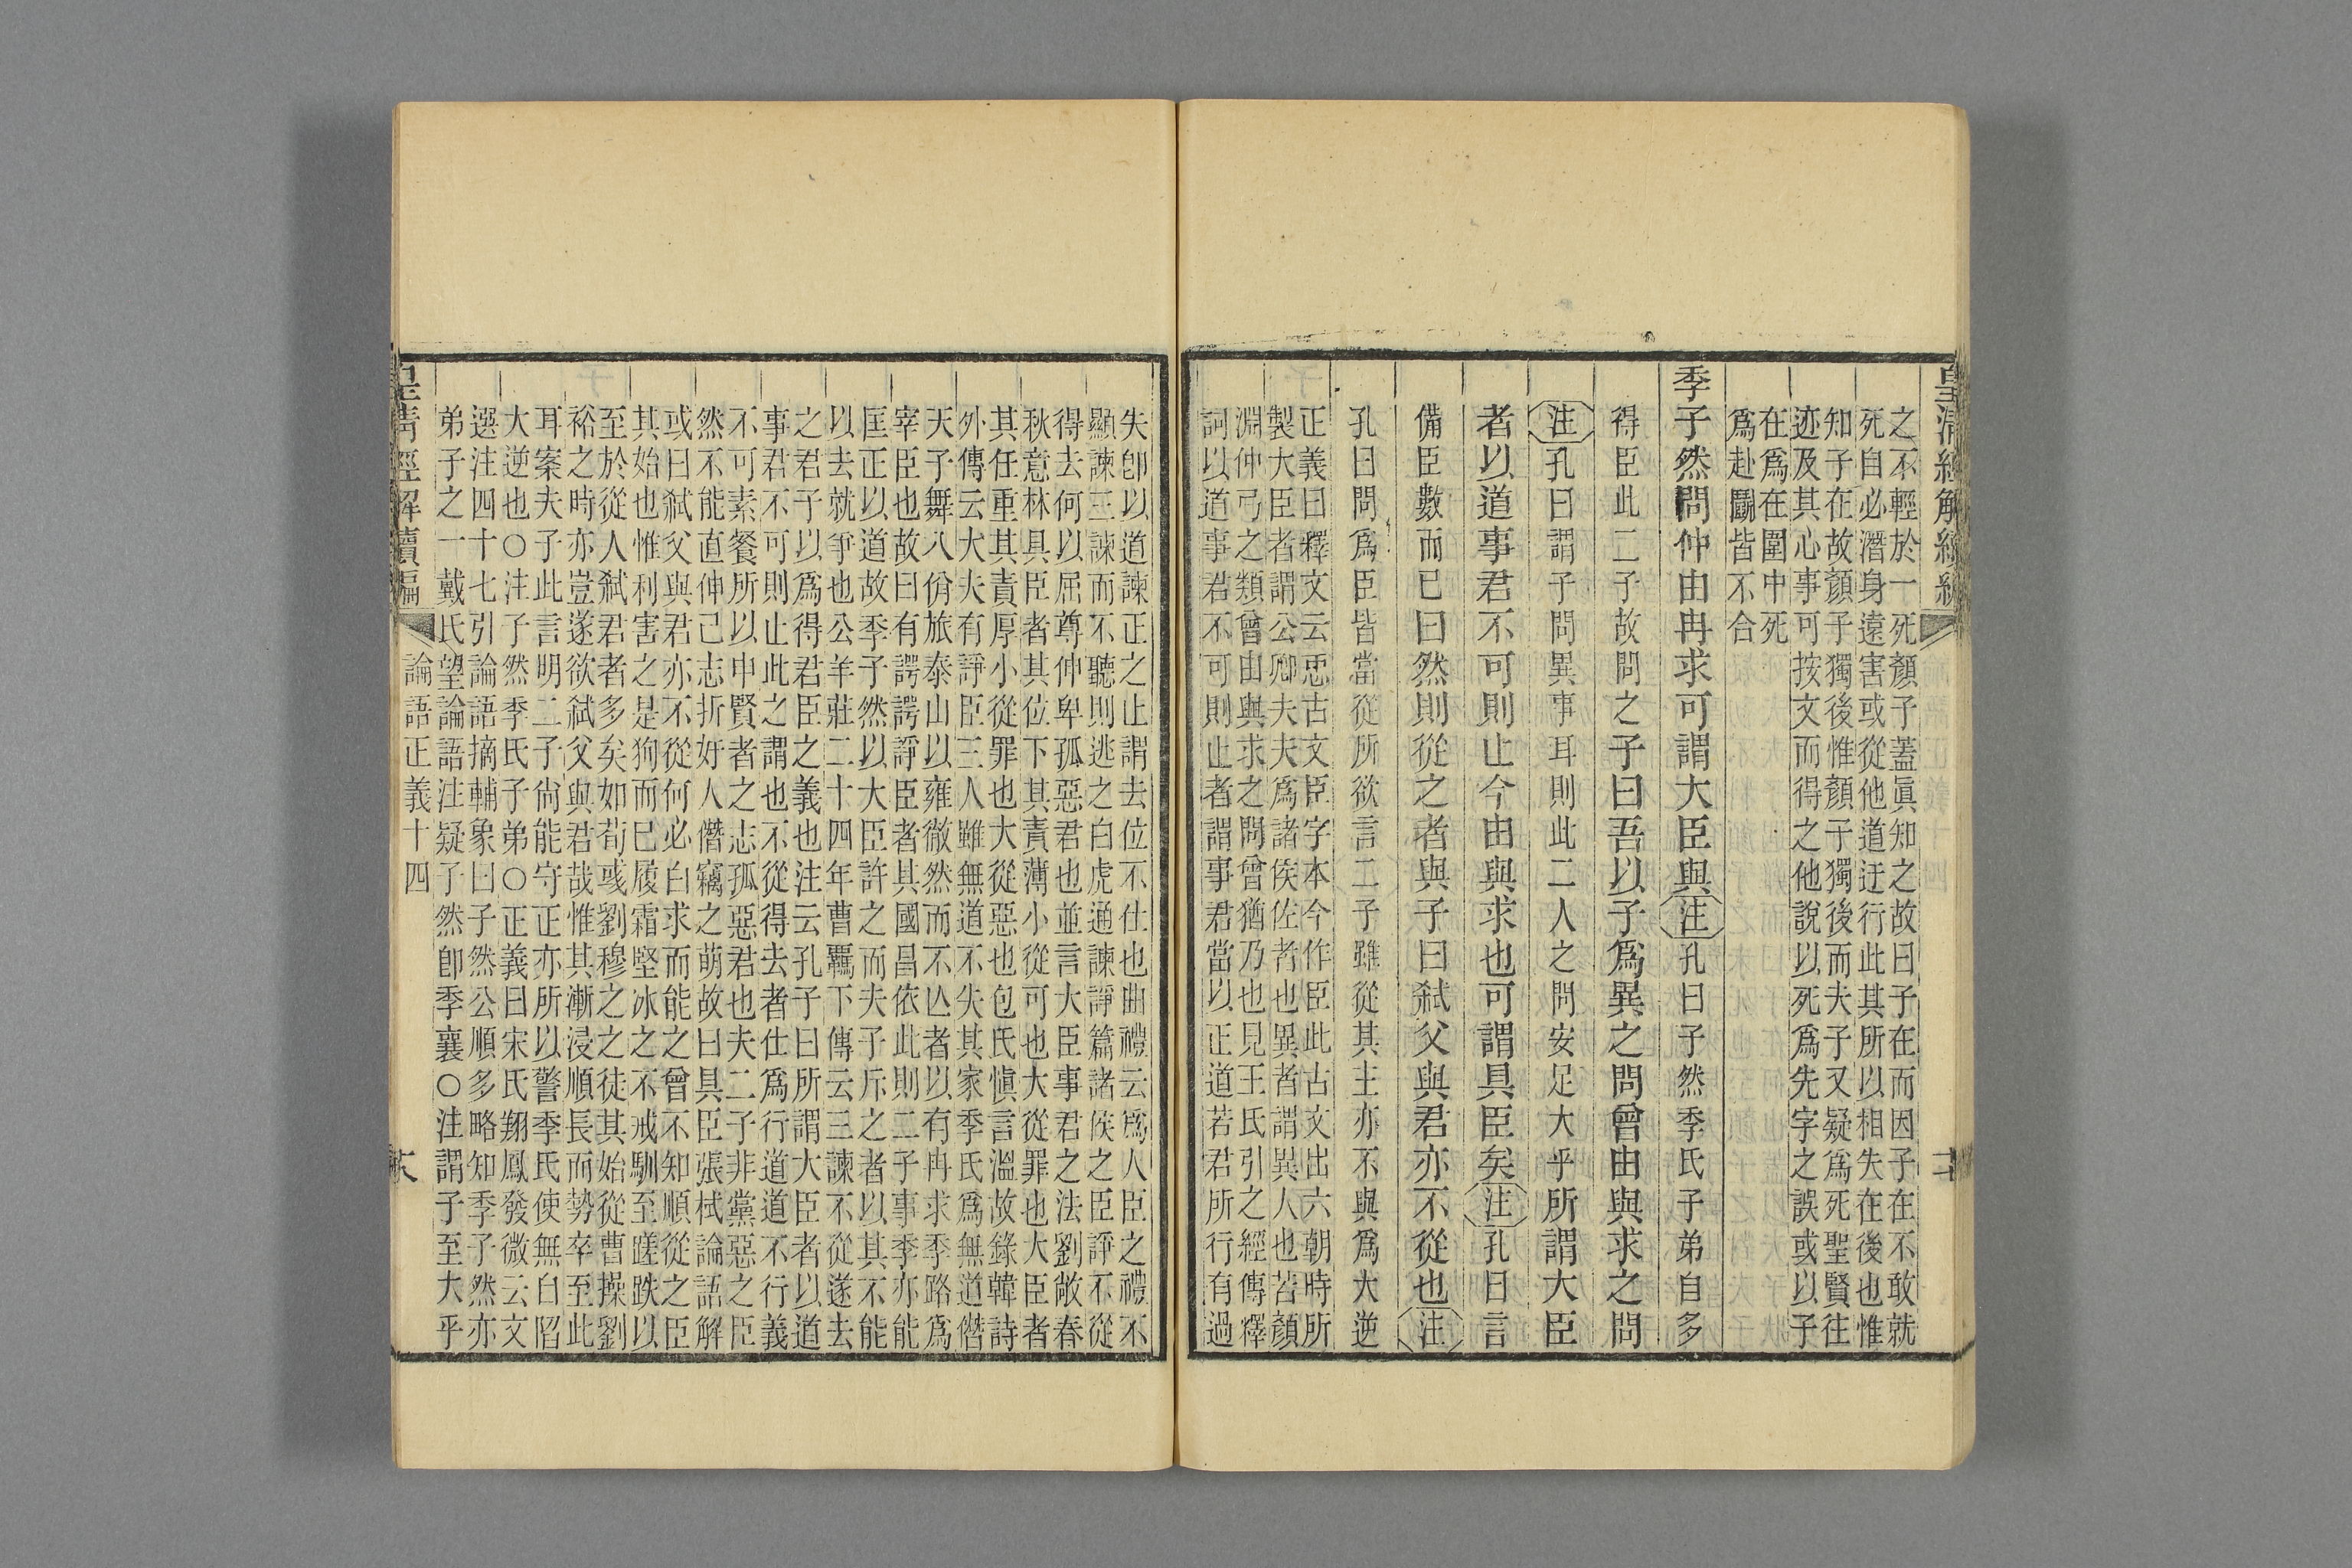 皇清經解續編
之不輕於一死顏子蓋眞知之故曰子在而因子在不敢就
死自必潛身遠害或從他道迂行此其所以相失在後也惟
知子在故顏子獨後惟顏子獨後而夫子又疑爲死聖賢往
迹及其心事可按文而得之他說以死爲先字之誤或以子
在爲在圍中死
爲赴鬬皆不合
季子然問仲由冉求可謂大臣與注孔曰子然季氏子弟自多
得臣此二子故問之子曰吾以子爲異之問曾由與求之問
注孔曰謂子問異事耳則此二人之問安足大乎所謂大臣
者以道事君不可則止今由與求也可謂具臣矣注孔曰言
備臣數而已曰然則從之者與子曰弑父與君亦不從也注
孔曰問爲臣皆當從所欲言二子雖從其主亦不與爲大逆
正義曰釋文云𢘑古文臣字本今作臣此古文出六朝時所
製大臣者謂公卿夫夫爲諸侯佐者也異者謂異人也若顏
淵仲弓之類曾由與求之問曾猶乃也見王氏引之經傳釋
詞以道事君不可則止者謂事君當以正道若君所行有過
失卽以道諫正之止謂去位不仕也曲禮云爲人臣之禮不
顯諫三諫而不聽則逃之白虎通諫諍篇諸侯之臣諍不從
得去何以屈尊仲卑孤惡君也並言大臣事君之法劉敞春
秋意林具臣者其位下其責薄小從可也大從罪也大臣者
其任重其責厚小從罪也大從惡也包氏愼言溫故錄韓詩
外傳云大夫有諍臣三人雖無道不失其家季氏爲無道僭
天子舞八佾旅泰山以雍徹然而不亾者以有冉求季路爲
宰臣也故曰有諤諤諍臣者其國昌依此則二子事季亦能
匡正以道故季子然以大臣許之而夫子斥之者以其不能
以去就爭也公羊莊二十四年曹羈下傳云三諫不從遂去
之君子以爲得君臣之義也注云孔子曰所謂大臣者以道
事君不可則止此之謂也不從得去者仕爲行道道不行義
不可素餐所以申賢者之志孤惡君也夫二子非黨惡之臣
然不能直伸己志折奸人僭竊之萌故曰具臣張栻論語解
或曰弑父與君亦不從何必由求而能之曾不知順從之臣
其始也惟利害之是狥而已履霜堅冰之不戒馴至蹉跌以
至於從人弑君者多矣如荀彧劉穆之之徒其始從曹操劉
裕之時亦豈遂欲弑父與君哉惟其漸浸順長而勢卒至此
耳案夫子此言明二子尙能守正亦所以警季氏使無自陷
大逆也○注子然季氏子弟○正義曰宋氏翔鳳發微云文
選注四十七引論語摘輔象曰子然公順多略知季子然亦
弟子之一戴氏望論語注疑子然卽季襄○注謂子至大乎
皇清經解續編
論語正義十四